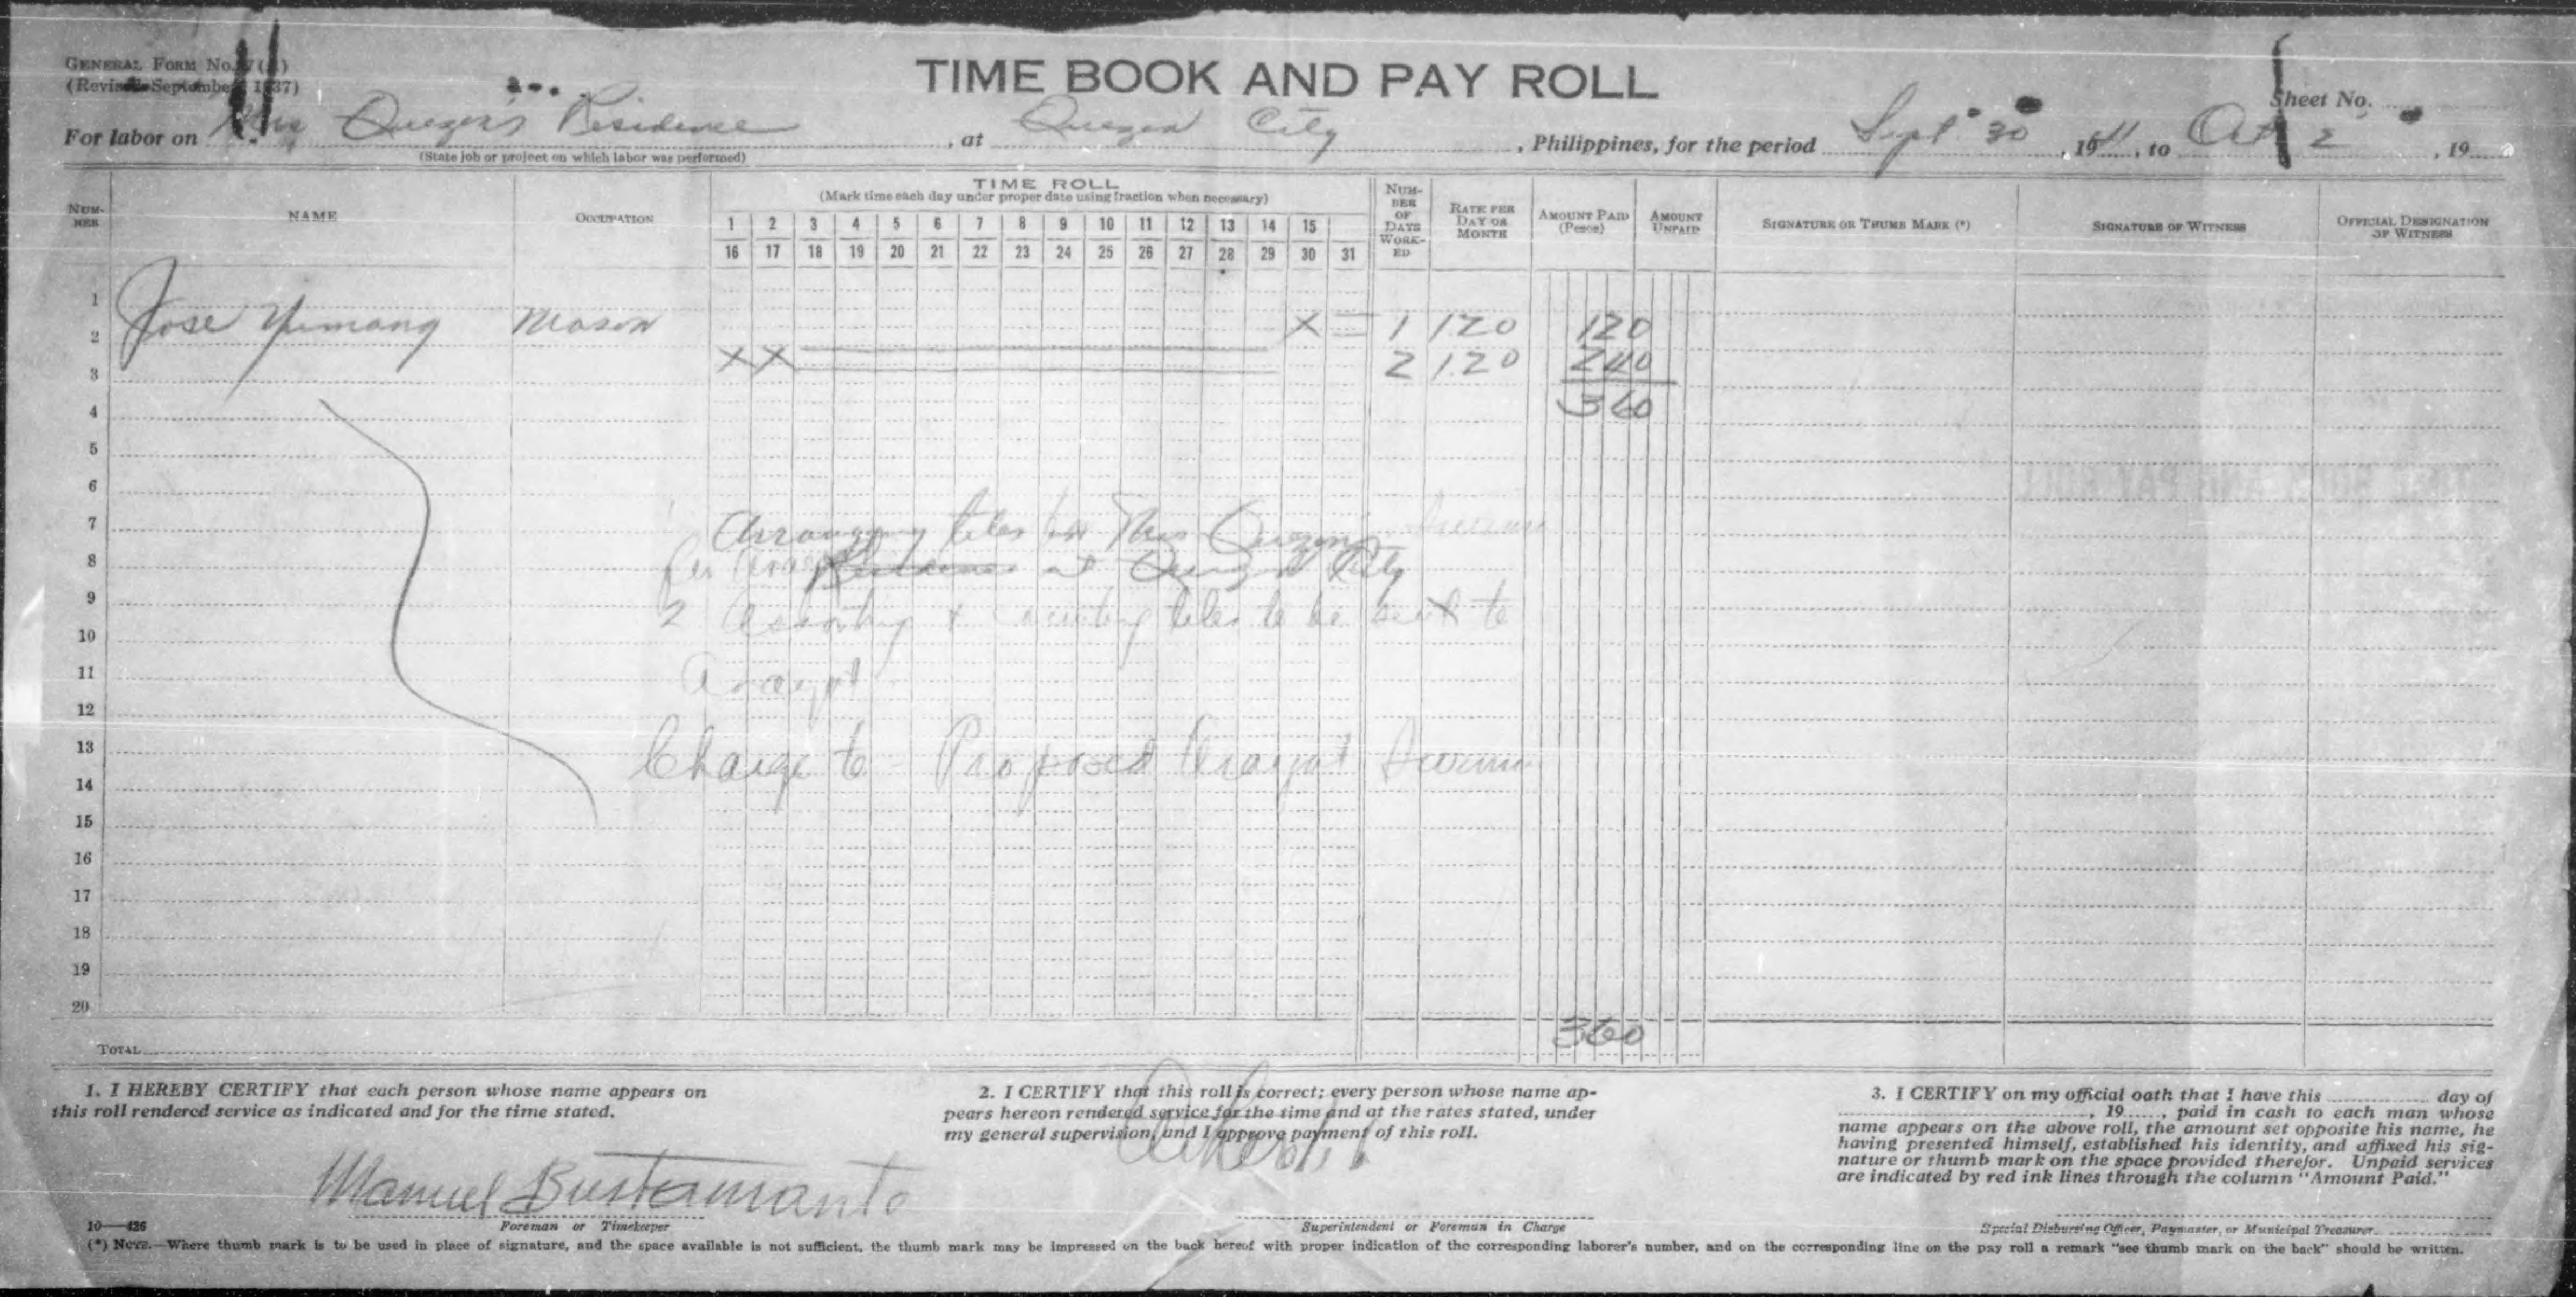 GENERAL FORM No. 7(A)
(Revised September 1937)
TIME BOOK AND PAY ROLL
Sheet No.
For labor on Mrs Quezon's Residence, at Quezon City, Philippines, for the period Sept 30, 1941, to Oct 2, 19
(State job or project on which labor was performed)
NUMBER NAME OCCUPATION TIME ROLL NUMBER OF DAYS WORKED RATE PER DAY OR MONTH AMOUNT PAID (Pesos) AMOUNT UNPAID SIGNATURE OR THUMB MARK (*) SIGNATURE OF WITNESS OFFICIAL DESIGNATION OF WITNESS
(Mark time each day under proper date using fraction when necessary)
1 2 3 4 5 6 7 8 9 10 11 12 13 14 15
16 17 18 19 20 21 22 23 24 25 26 27 28 29 30 31
1
2 Jose Yumang Mason X 1 120 120
3 XX 2 1.20 240
4 360
5
6
7 Arranging tiles for Mrs Quezon's
8 Residence at Quezon City
9 2 Assorting & tiles to be sent to
10
11 Arayat
12
13 Charge to - Proposed Arayat
14
15
16
17
18
19
20
TOTAL 360
1. I HEREBY CERTIFY that each person whose name appears on
this roll rendered service as indicated and for the time stated.
Manuel Bustamante
Foreman or Timekeeper
2. I CERTIFY that this roll is correct; every person whose name ap-
pears hereon rendered service for the time and at the rates stated, under
my general supervision, and I approve payment of this roll.
Superintendent or Foreman in Charge
3. I CERTIFY on my official oath that I have this day of
, 19, paid in cash to each man whose
name appears on the above roll, the amount set opposite his name, he
having presented himself, established his identity, and affixed his sig-
nature or thumb mark on the space provided therefor. Unpaid services
are indicated by red ink lines through the column "Amount Paid."
Special Disbursing Officer, Paymaster, or Municipal Treasurer.
10—426
(*) NOTE.—Where thumb mark is to be used in place of signature, and the space available is not sufficient, the thumb mark may be impressed on the back hereof with proper indication of the corresponding laborer's number, and on the corresponding line on the pay roll a remark "see thumb mark on the back" should be written.